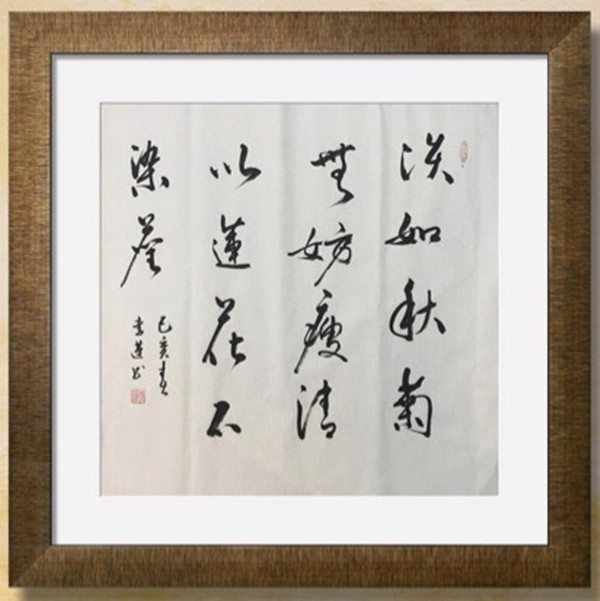 淡如秋菊
無妨瘦清
以蓮花不
染塵
己亥春
李蓮书